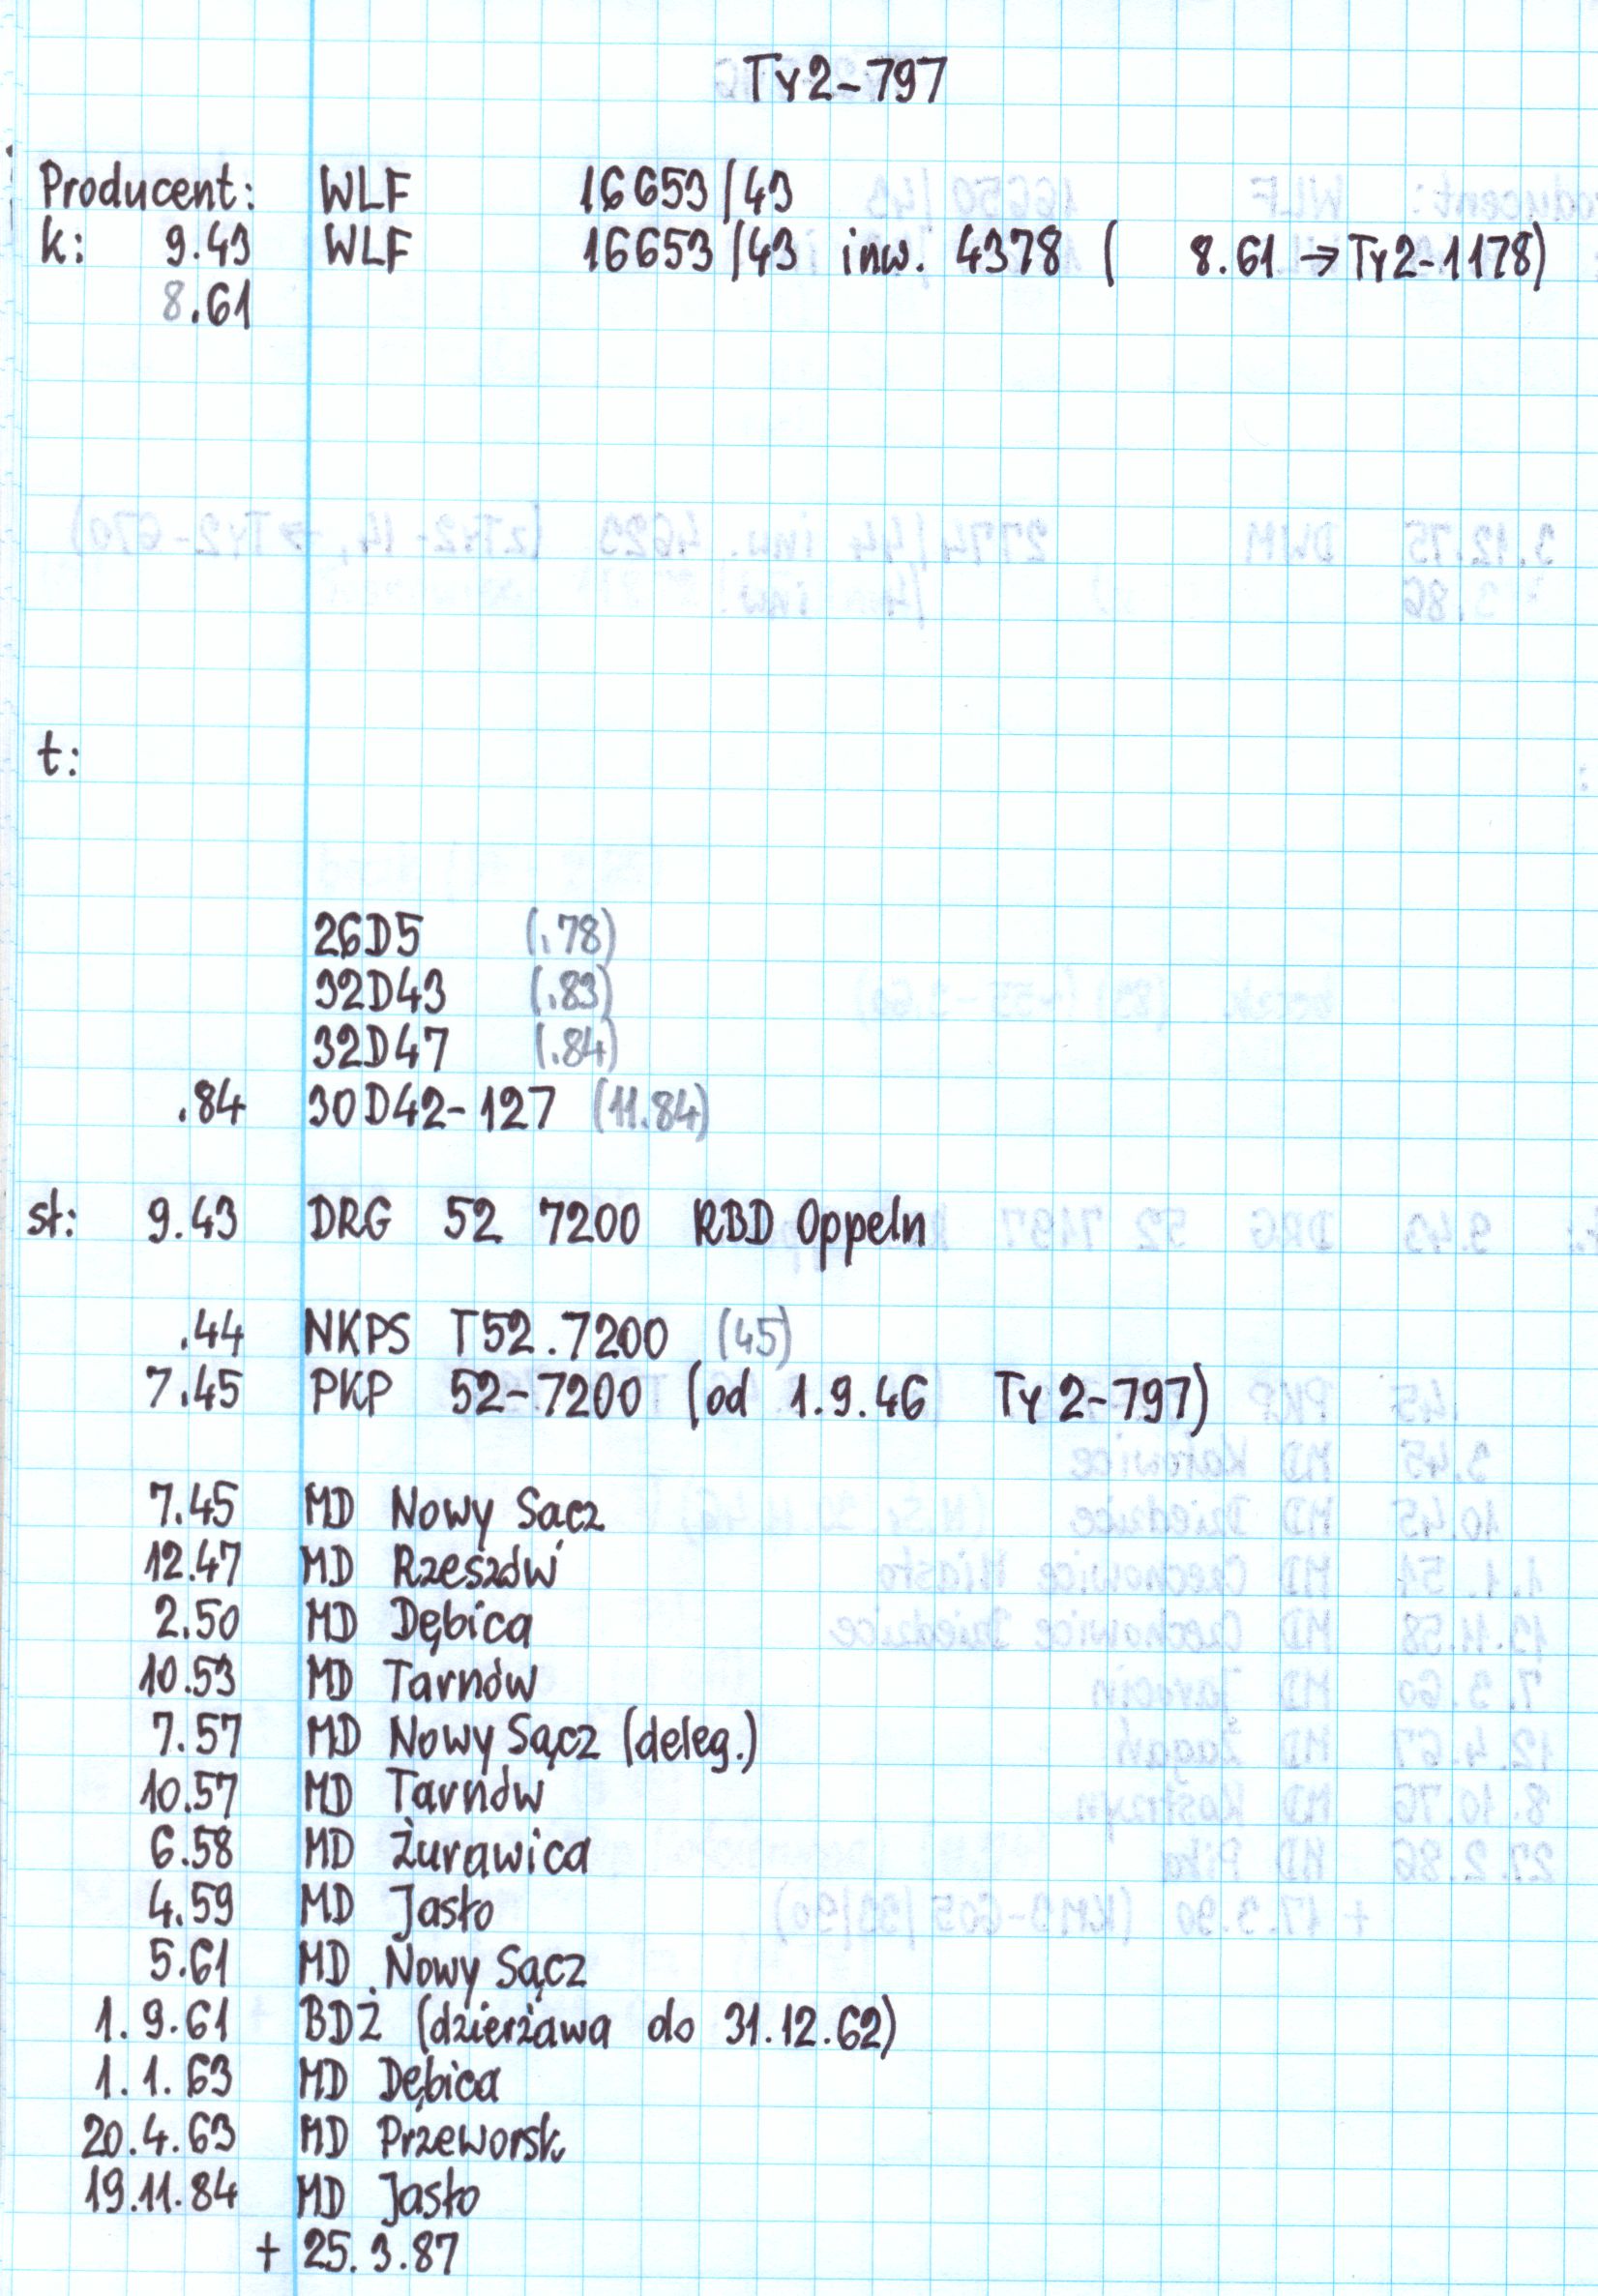 Ty2-797
Producent: WLF 16653/43
k: 9.43 WLF 16653/43 inw. 4378 ( 8.61 → Ty2-1178)
8.61
t:
26D5 (.78)
32D43 (.83)
32D47 (.84)
.84 30D42-127 (11.84)
st: 9.43 DRG 52 7200 RBD Oppeln
.44 NKPS T52.7200 (45)
7.45 PKP 52-7200 (od 1.9.46 Ty2-797)
7.45 MD Nowy Sącz
12.47 MD Rzeszów
2.50 MD Dębica
10.53 MD Tarnów
7.57 MD Nowy Sącz (deleg.)
10.57 MD Tarnów
6.58 MD Żurawica
4.59 MD Jasło
5.61 MD Nowy Sącz
1.9.61 BDŻ (dzierżawa do 31.12.62)
1.1.63 MD Dębica
20.4.63 MD Przeworsk
19.11.84 MD Jasło
+ 25.3.87